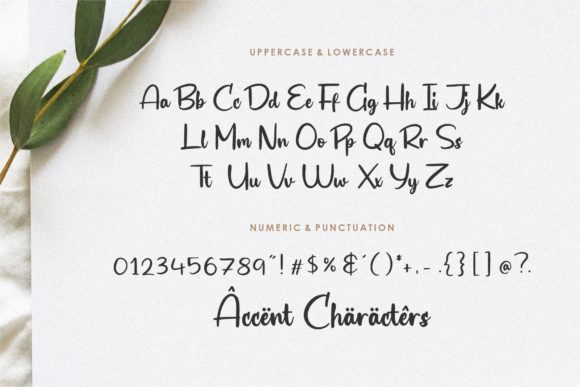 UPPERCASE & LOWERCASE
Aa Bb Cc Dd Ee Ff Gg Hh Ii Jj Kk
Ll Mm Nn Oo Pp Qq Rr Ss
Tt Uu Vv Ww Xx Yy Zz
NUMERIC & PUNCTUATION
0123456789"!#$%&'()*+,-.{}[]@?.
Âccënt Chäräctêrs